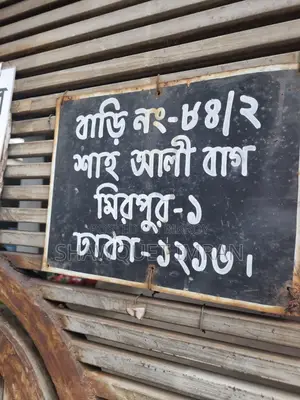 বাড়ি নং-৮৪/২
শাহ আলী বাগ
মিরপুর-১
ঢাকা-১২১৬।